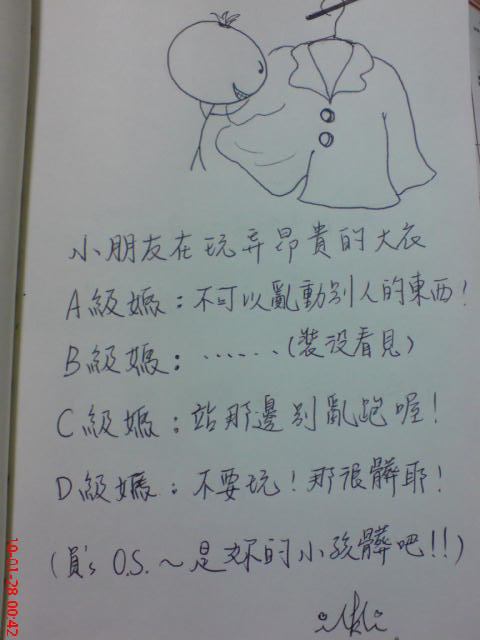 小朋友在玩弄昂貴的大衣
A級媽：不可以亂動別人的東西！
B級媽：……（裝沒看見）
C級媽：站那邊別亂跑喔！
D級媽：不要玩！那很髒耶！
（員's O.S.～是妳的小孩髒吧!!）
10-01-28 00:42